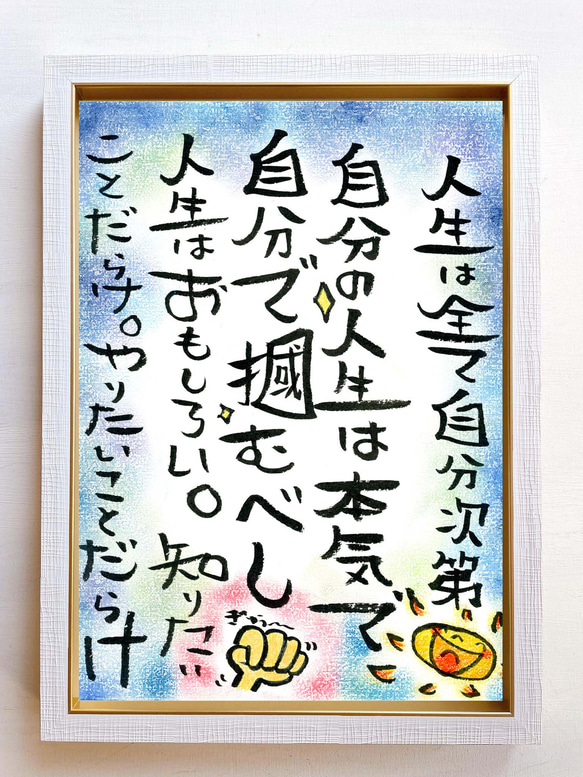 人生は全て自分次第
自分の人生は本気で
自分で掴むべし
人生はおもしろい。知りたい
ことだらけ。やりたいことだらけ
ぎゅぅ〜